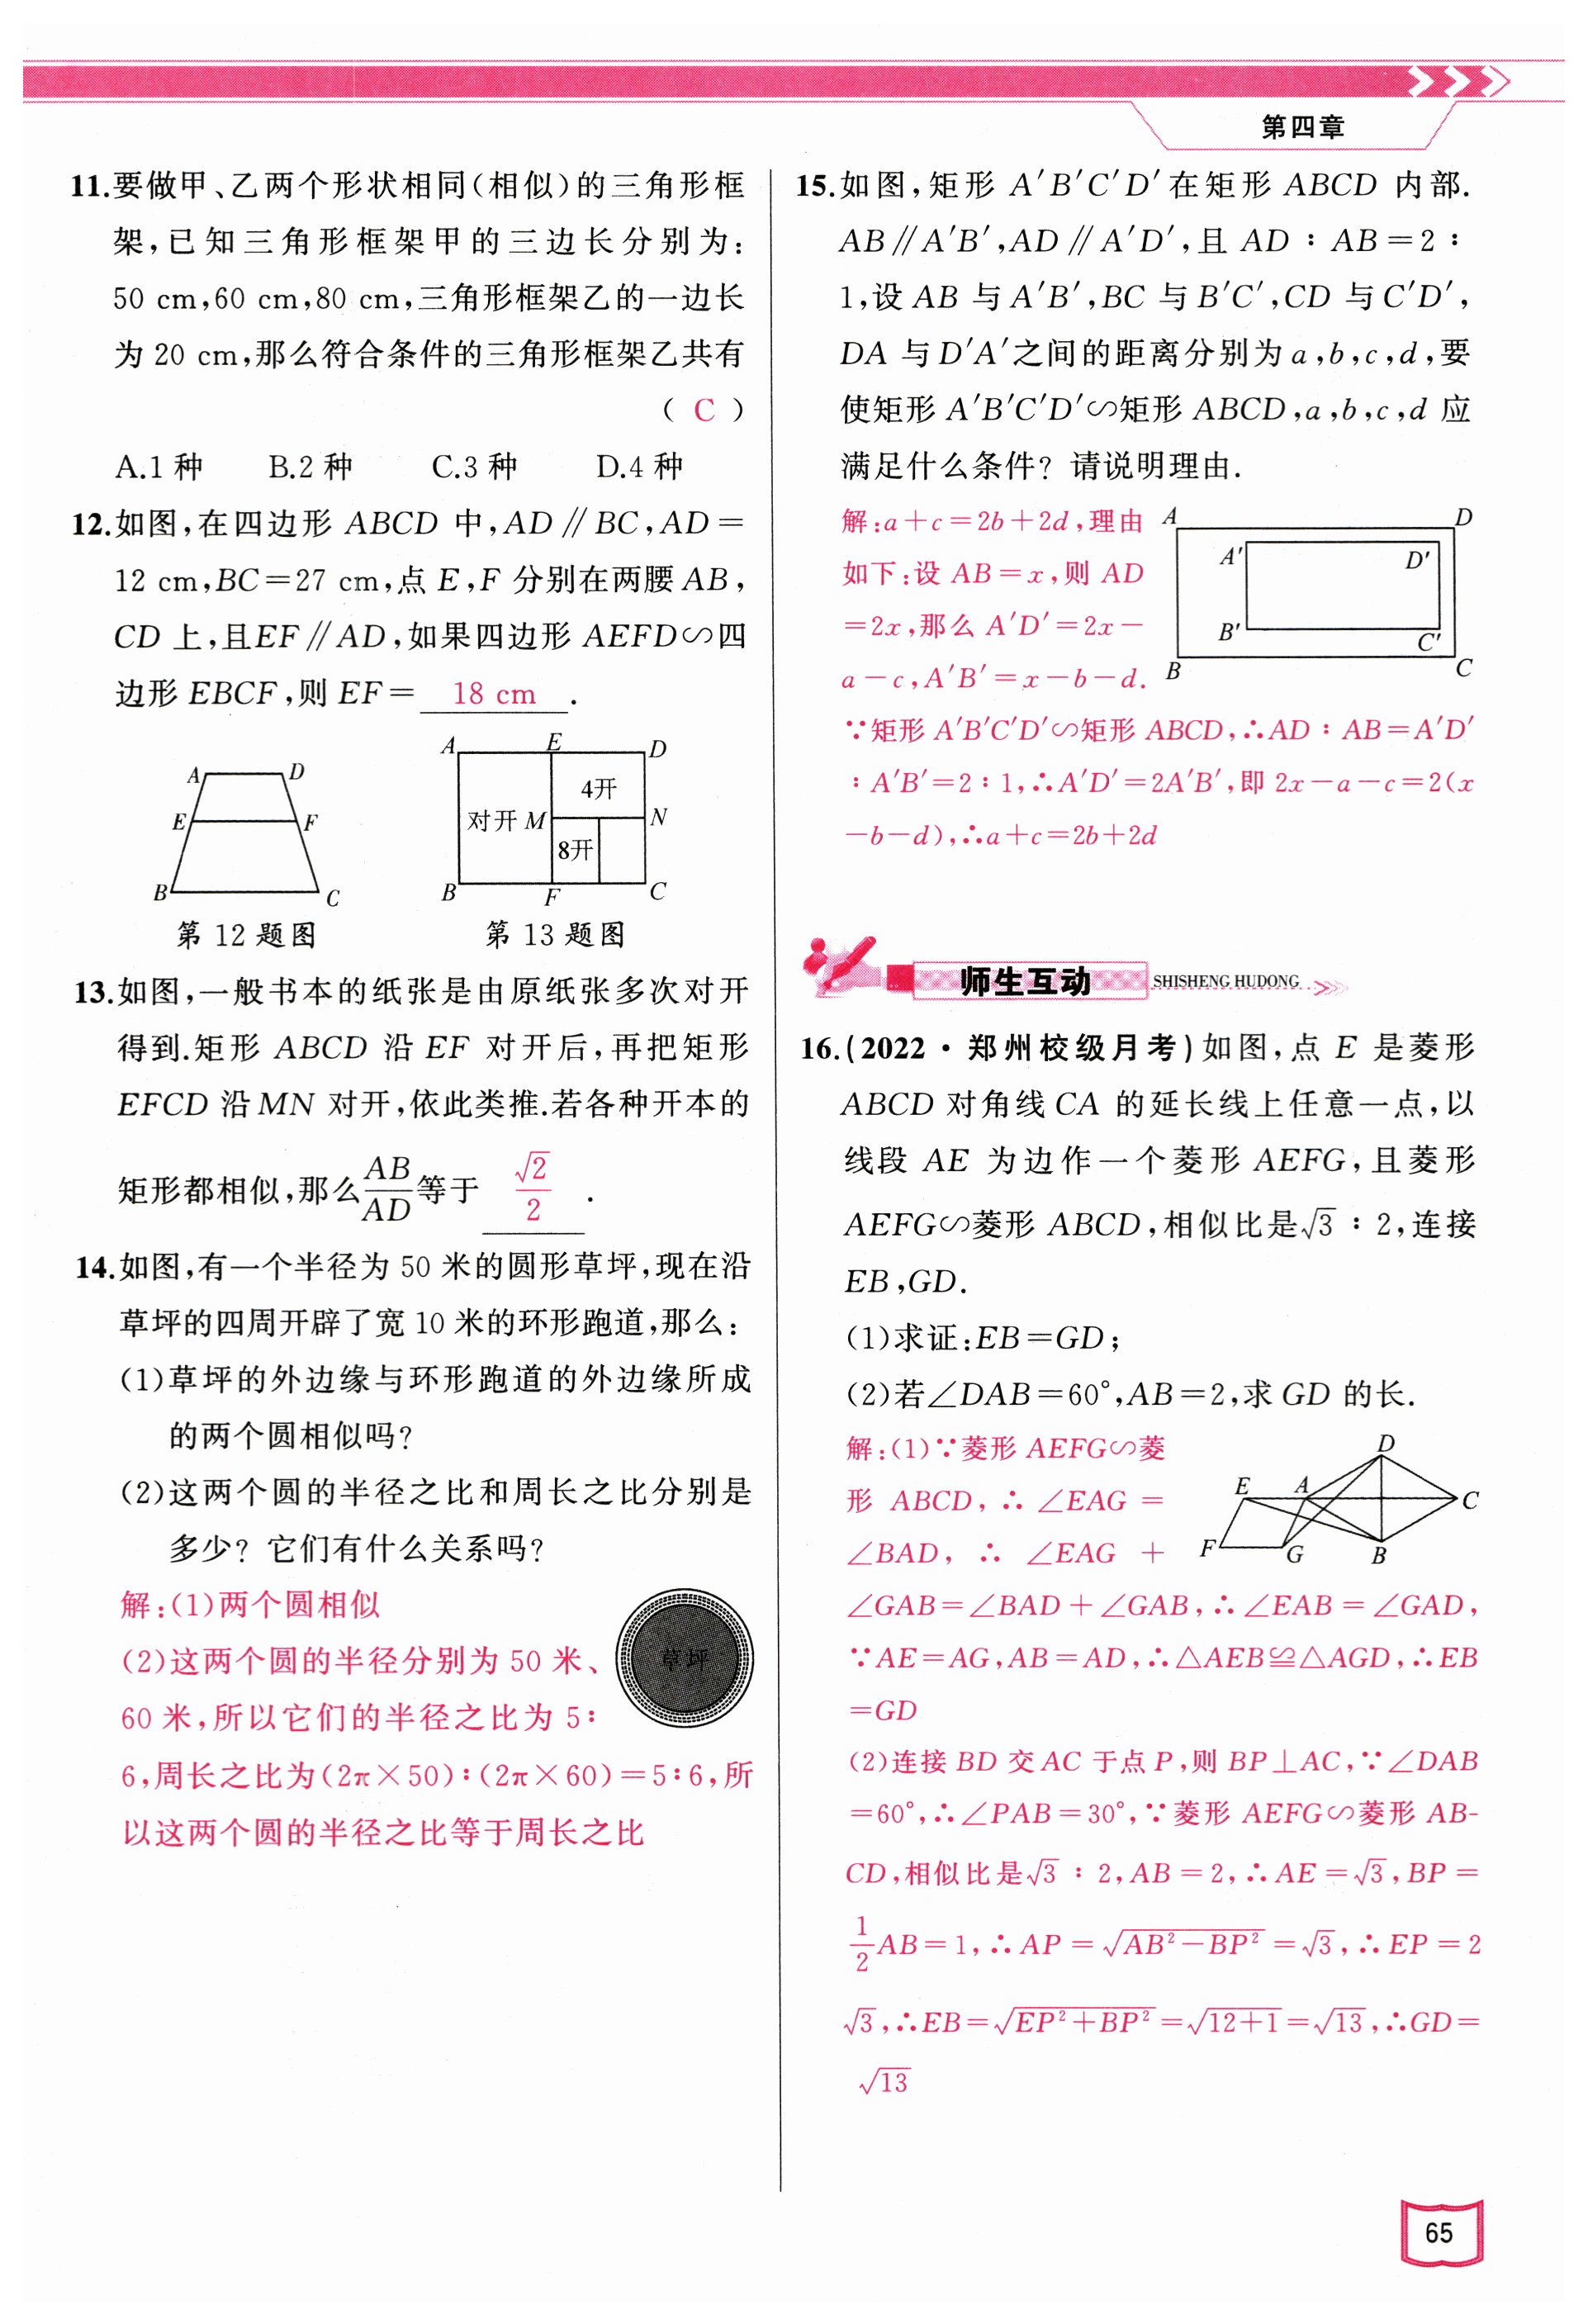 第四章
11.要做甲、乙两个形状相同(相似)的三角形框
架,已知三角形框架甲的三边长分别为:
50 cm,60 cm,80 cm,三角形框架乙的一边长
为 20 cm,那么符合条件的三角形框架乙共有
( C )
A.1 种 B.2 种 C.3 种 D.4 种
12.如图,在四边形 ABCD 中,AD∥BC,AD=
12 cm,BC=27 cm,点 E,F 分别在两腰 AB,
CD 上,且EF∥AD,如果四边形 AEFD∽四
边形 EBCF,则 EF= 18 cm .
A D
E F
B C
第 12 题图
A E D
4开
对开 M N
8开
B F C
第 13 题图
13.如图,一般书本的纸张是由原纸张多次对开
得到.矩形 ABCD 沿 EF 对开后,再把矩形
EFCD 沿 MN 对开,依此类推.若各种开本的
矩形都相似,那么AB/AD等于 √2/2 .
14.如图,有一个半径为 50 米的圆形草坪,现在沿
草坪的四周开辟了宽 10 米的环形跑道,那么:
(1)草坪的外边缘与环形跑道的外边缘所成
的两个圆相似吗?
(2)这两个圆的半径之比和周长之比分别是
多少? 它们有什么关系吗?
解:(1)两个圆相似
(2)这两个圆的半径分别为 50 米、
60 米,所以它们的半径之比为 5:
6,周长之比为(2π×50):(2π×60)=5:6,所
以这两个圆的半径之比等于周长之比
草坪
15.如图,矩形 A′B′C′D′在矩形 ABCD 内部.
AB∥A′B′,AD∥A′D′,且 AD:AB=2:
1,设 AB 与 A′B′,BC 与 B′C′,CD 与 C′D′,
DA 与 D′A′之间的距离分别为 a,b,c,d,要
使矩形 A′B′C′D′∽矩形 ABCD,a,b,c,d 应
满足什么条件? 请说明理由.
解:a+c=2b+2d,理由
如下:设 AB=x,则 AD
=2x,那么 A′D′=2x-
a-c,A′B′=x-b-d.
∵矩形 A′B′C′D′∽矩形 ABCD,∴AD:AB=A′D′
:A′B′=2:1,∴A′D′=2A′B′,即 2x-a-c=2(x
-b-d),∴a+c=2b+2d
A D
A′ D′
B′ C′
B C
师生互动 SHISHENG HUDONG
16.(2022·郑州校级月考)如图,点 E 是菱形
ABCD 对角线 CA 的延长线上任意一点,以
线段 AE 为边作一个菱形 AEFG,且菱形
AEFG∽菱形 ABCD,相似比是√3:2,连接
EB,GD.
(1)求证:EB=GD;
(2)若∠DAB=60°,AB=2,求 GD 的长.
解:(1)∵菱形 AEFG∽菱
形 ABCD,∴∠EAG=
∠BAD,∴∠EAG+
∠GAB=∠BAD+∠GAB,∴∠EAB=∠GAD,
∵AE=AG,AB=AD,∴△AEB≌△AGD,∴EB
=GD
(2)连接 BD 交 AC 于点 P,则 BP⊥AC,∵∠DAB
=60°,∴∠PAB=30°,∵菱形 AEFG∽菱形 AB-
CD,相似比是√3:2,AB=2,∴AE=√3,BP=
1/2AB=1,∴AP=√(AB²-BP²)=√3,∴EP=2
√3,∴EB=√(EP²+BP²)=√(12+1)=√13,∴GD=
√13
D
E A C
F G B
65